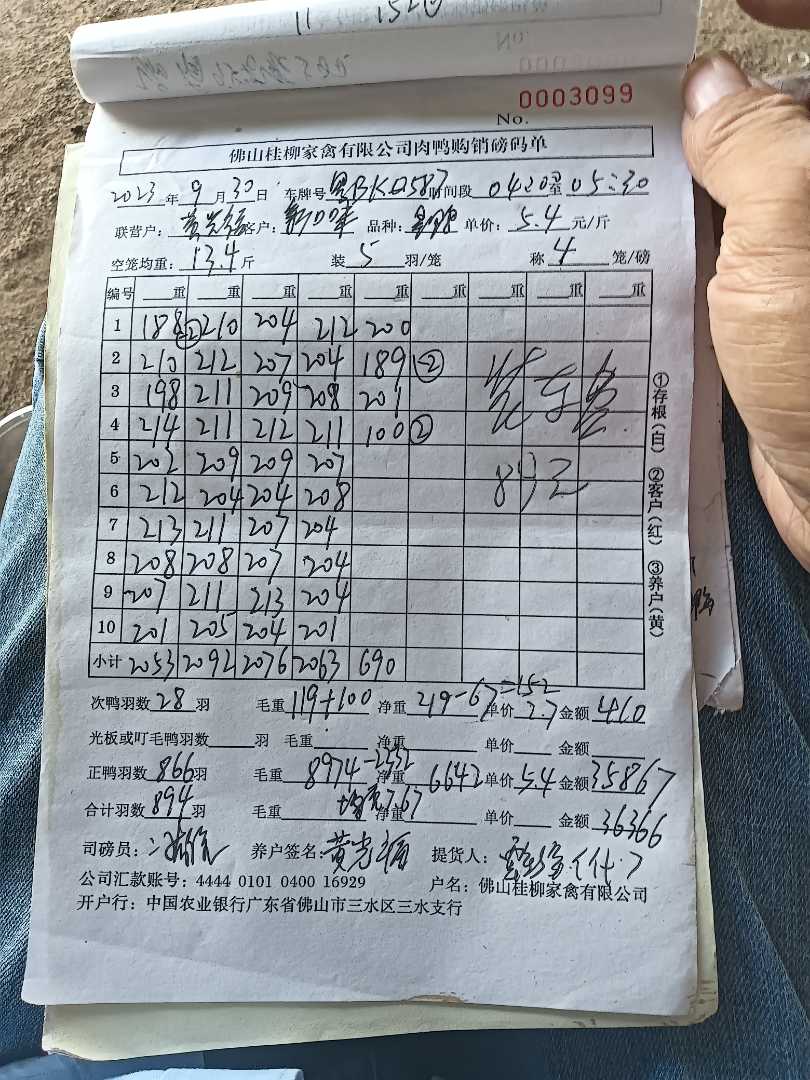 11 1520
0003099
No.
佛山桂柳家禽有限公司肉鸭购销磅码单
2023年9月30日 车牌号粤BKQ587时间段0420至05:30
联营户: 客户: 品种: 单价:5.4元/斤
空笼均重:13.4斤 装5羽/笼 称4笼/磅
编号 重 重 重 重 重 重 重 重 重
1 188② 210 204 212 200
2 210 212 207 204 189②
3 198 211 209 208 201
4 214 211 212 211 100②
5 202 209 209 207
6 212 204 204 208
7 213 211 207 204
8 208 208 207 204
9 207 211 213 204
10 201 205 204 201
小计 2053 2092 2076 2063 690
装车
89元
①存根(白) ②客户(红) ③养户(黄)
次鸭羽数28羽 毛重119+100 净重219-67=152 单价2.7金额410
光板或叮毛鸭羽数 羽 毛重 净重 单价 金额
正鸭羽数866羽 毛重8974-2332 净重6642单价5.4金额35867
合计羽数894羽 毛重 均重7.67 净重 单价 金额36366
司磅员: 养户签名: 提货人:
公司汇款账号:4444 0101 0400 16929 户名:佛山桂柳家禽有限公司
开户行:中国农业银行广东省佛山市三水区三水支行